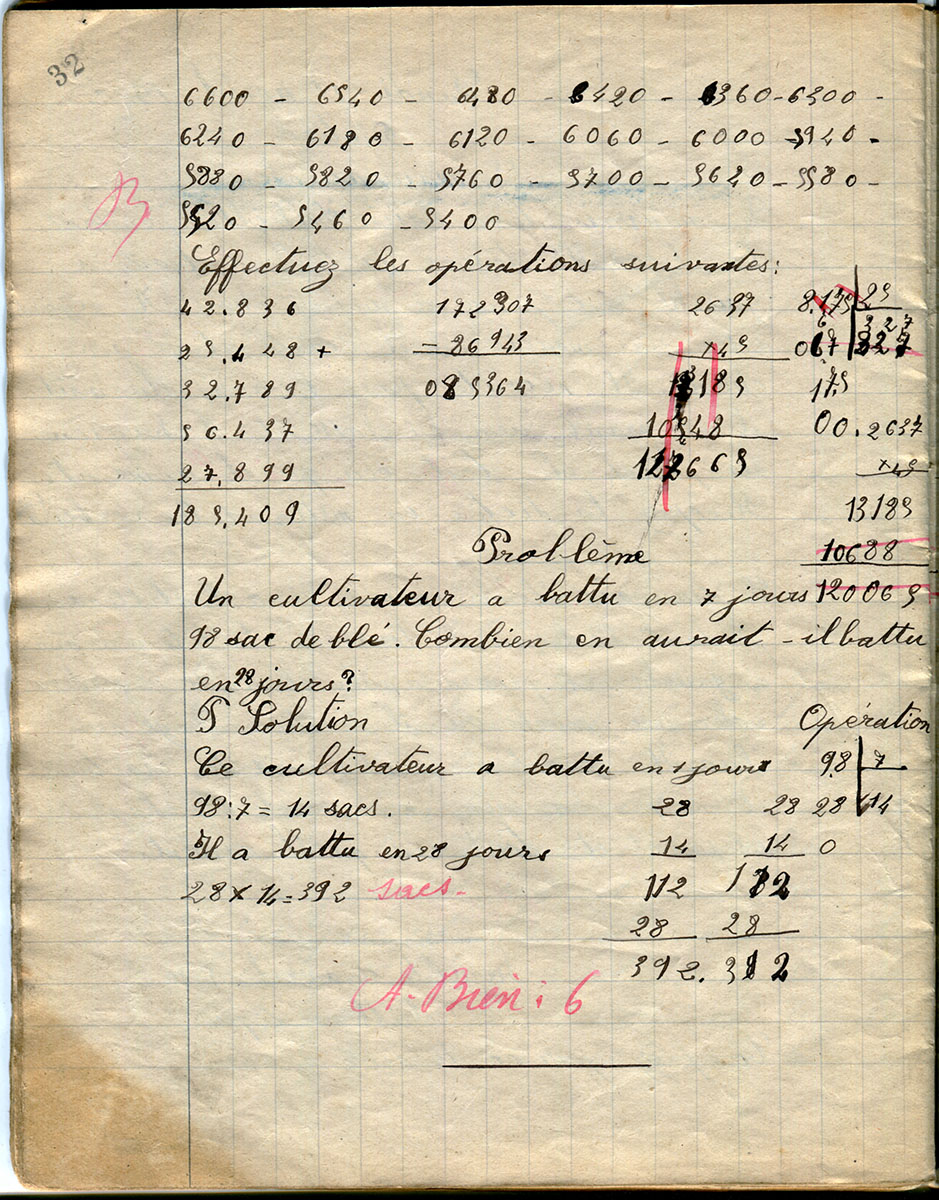 32
6600 - 6540 - 6480 - 6420 - 6360 - 6300 -
6240 - 6180 - 6120 - 6060 - 6000 - 5940 -
5880 - 5820 - 5760 - 5700 - 5620 - 5580 -
B
5520 - 5460 - 5400
Effectuez les opérations suivantes:
42.836 172307 2637 8.175 25
25.448 + - 86943 x45 067 327
32.789 085364 13185 175
56.437 10548 00. 2637
27.899 665 x45
185.409 13185
Problême 10688
Un cultivateur a battu en 7 jours 120065
98 sac de blé. Combien en aurait-il battu
en 28 jours?
P Solution Opération
Ce cultivateur a battu en 1 jours 98 7
98:7 = 14 sacs. 28 28 28 14
Il a battu en 28 jours 14 14 0
28 x 14 = 392 sacs. 112 112
28 28
392. 392
A. Bien: 6